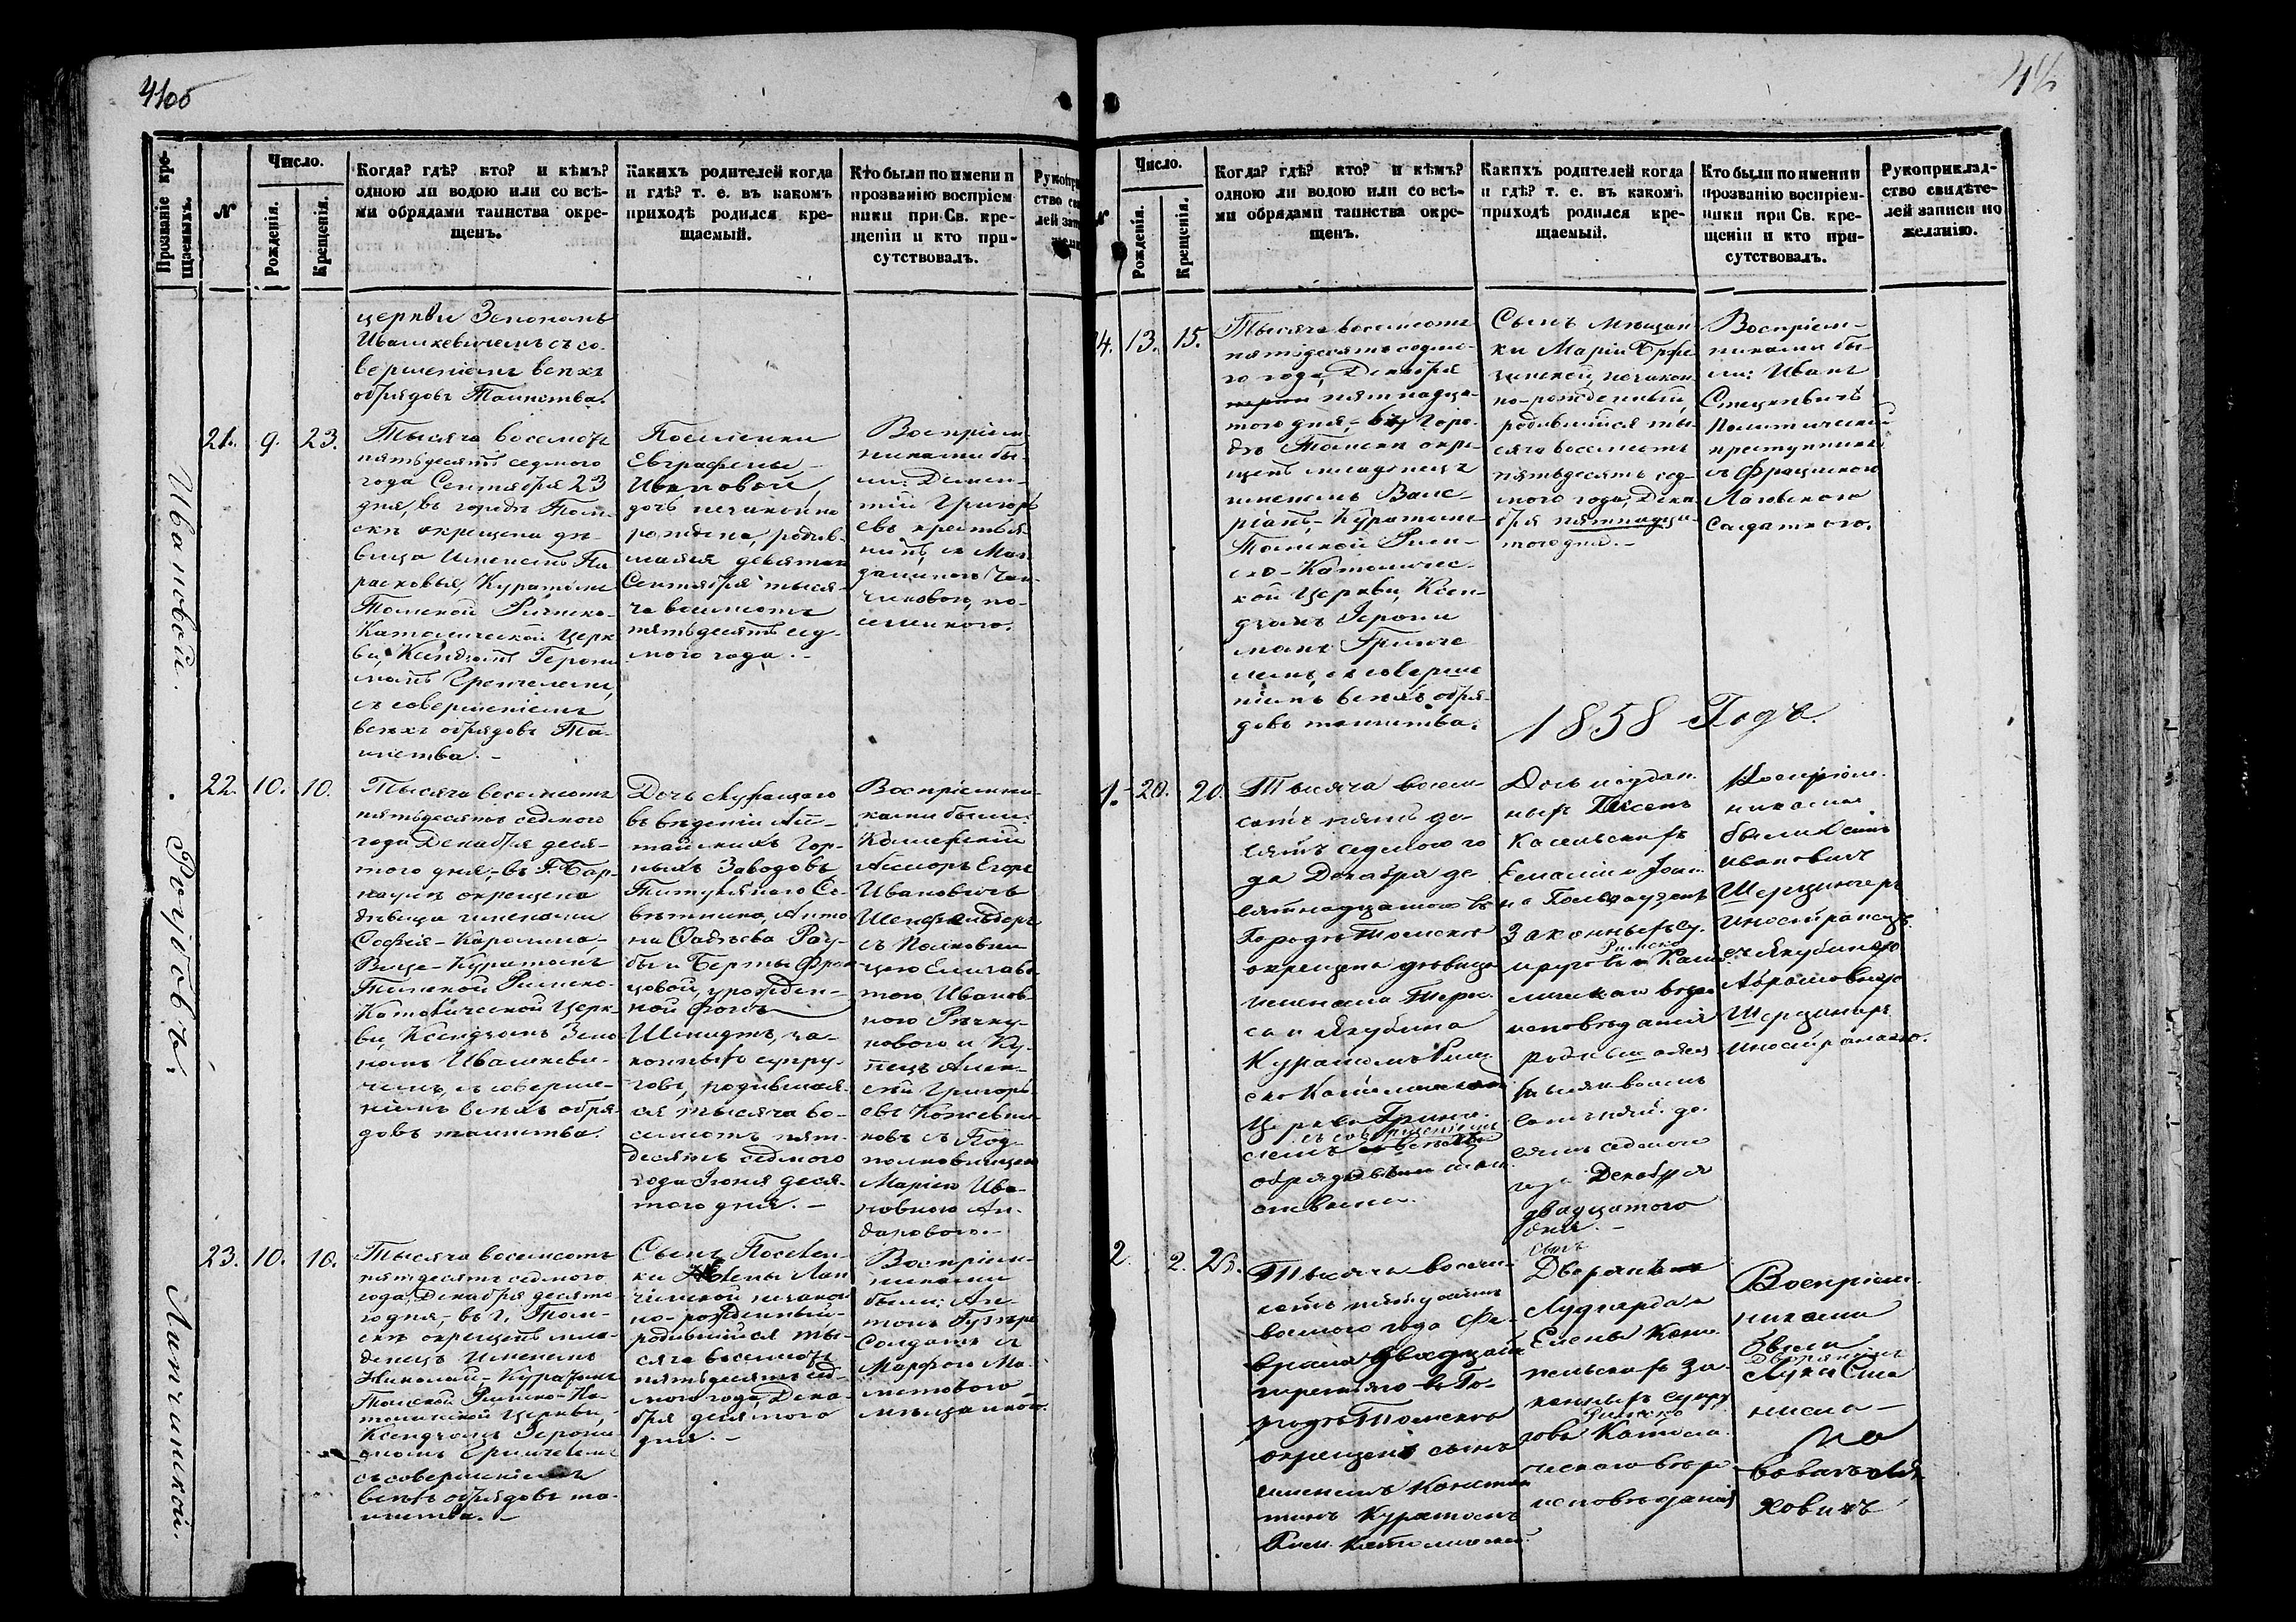 41об
Прозваніе кре-
щаемыхъ.
№
Число.
Рожденія.
Крещенія.
Когда? гдѣ? кто? и кѣмъ?
одною ли водою или со всѣ-
ми обрядами таинства окре-
щенъ.
Какихъ родителей когда
и гдѣ? т. е. въ какомъ
приходѣ родился кре-
щаемый.
Кто были по имени и
прозванію воспріем-
ники при Св. кре-
щеніи и кто при-
сутствовалъ.
церкви Зенономъ
Ивашкевичемъ съ со-
вершеніемъ всѣхъ
обрядовъ Таинства.
Ивановой.
21. 9. 23.
Тысяча восемьсотъ
пятьдесятъ седмого
года Сентября 23
дня, въ городѣ Том-
скѣ окрещена дѣ-
вица именемъ Па
расковья, Куратомъ
Томской Римско-
Католической Церк
ви, Ксендзомъ Герони
момъ Гринчелемъ,
съ совершеніемъ
всѣхъ обрядовъ Та-
инства. –
Поселенки
Евграфены
Ивановой
дочь незаконно
рождена, родив-
шаяся девятаго
Сентября тыся-
ча восемьсотъ
пятьдесятъ сед-
мого года. –
Воспріем-
никами бы-
ли: Демен-
тій Григорь
евъ крестья-
нинъ съ Маг-
далиною
по-
селенкою.
Роубовъ.
22. 10. 10.
Тысяча восемьсотъ
пятьдесятъ седмого
года Декабря деся-
того дня, – въ Г. Бар-
наулѣ окрещена
дѣвица именами
Софія – Каролина –
Вице – Куратомъ
Томской Римско-
Католической Церк-
ви, Ксендзомъ Зено
номъ Ивашкеви-
чемъ, съ соверше-
ніемъ всѣхъ обря-
довъ таинства.
Дочь служащаго
въ вѣденіи Ал-
тайскихъ Гор-
ныхъ Заводовъ
Титулярнаго Со-
вѣтника, Анто
на Фадѣева Роу-
бы и Берты Фран
цовой, урожден-
ной фонъ
Шмидтъ, за-
конныхъ супру-
говъ, родившая-
ся тысяча во-
семьсотъ пять-
десятъ седмого
года Іюня деся-
того дня. –
Воспріемни-
ками были:
Колежскій
Асесоръ Егоръ
Ивановичъ
съ Полковни
цею Елизаве-
тою Иванов-
ною
и Ку-
пецъ Алек-
сѣй Григорь-
евъ Кожевни-
ковъ съ Под-
полковницею
Маріею Ива-
новною
Лапчинскій.
23. 10. 10.
Тысяча восемьсотъ
пятьдесятъ седмого
года, Декабря десято
го дня, – въ г. Том-
скѣ окрещенъ мла-
денецъ именемъ
Николай – Куратомъ
Томской Римско-Ка-
толической Церкви,
Ксендзомъ Герони-
момъ Гринчелемъ
съ совершеніемъ
всѣхъ обрядовъ та-
инства. –
Сынъ Поселен-
ки Елены Лап
чинской незакон
но-рожденный –
родившійся ты-
сяча восемьсотъ
пятьдесятъ сед-
мого года, Дека-
бря десятого
дня. –
Воспріем-
никами
были: Ан-
тонъ
Солдатъ съ
Марфою Ма-
–
мѣщанкою.
Число.
Рожденія.
Крещенія.
Когда? гдѣ? кто? и кѣмъ?
одною ли водою или со всѣ-
ми обрядами таинства окре-
щенъ.
Какихъ родителей когда
и гдѣ? т. е. въ какомъ
приходѣ родился кре-
щаемый.
Кто были по имени и
прозванію воспріем-
ники при Св. кре-
щеніи и кто при-
сутствовалъ.
Рукоприклад-
ство свидѣте-
лей записи по
желанію.
24. 13. 15.
Тысяча восемьсотъ
пятьдесятъ седмо-
го года, Декабря
пятнадца-
того дня, – въ Горо-
дѣ Томскѣ окре-
щенъ младенецъ
именемъ Вале-
ріанъ, – Куратомъ
Томской Рим-
ско-Католичес-
кой Церкви, Ксен-
дзомъ Герони
момъ Гринче
лемъ, съ соверше
ніемъ всѣхъ обря-
довъ таинства.
Сынъ мѣщан
ки Маріи
незакон
но-рожденный,
родившійся ты-
сяча восемьсотъ
пятьдесятъ сед-
мого года, Дека
бря пятнадца-
того дня. –
Воспріем-
никами бы-
ли: Иванъ
Стецкевичъ
политическій
преступникъ
съ
солдаткою.
1858 Годъ.
1. 20. 20.
Тысяча восем-
сотъ пять де-
сятъ седмого го
да Декабря де
вятнадцатого въ
Городѣ Томскѣ
окрещена дѣвица
именами Тере-
са и Якубина
Куратомъ Рим
ско Католической
Церкви Гринче-
лемъ съ совершеніемъ
всѣхъ
обрядовъ таин
ства.
Дочь поддан
ныхъ Гессенъ
Кассельскихъ
Емаліи и Іоан
на
законныхъ су-
пруговъ Римско Като-
лическаго вѣро
исповѣданія
родившаяся
тысяча восемь
сотъ пять де
сятъ седмого
года Декабря
двадцатого
дня. –
Воспріем-
никами
были Осипъ
Ивановичъ
Шерцингеръ
иностранецъ
съ Якубиною
Абрамовною
Шерцингеръ
иностранкою.
2. 2. 23.
Тысяча восем-
сотъ пятьдесятъ
восмого года Фе-
враля двадцать
третьяго въ Го-
родѣ Томскѣ
окрещенъ сынъ
именемъ Констан
тинъ Куратомъ
Рим. Католической
Сынъ
Дворянъ
Лудгарда и
Елены
за-
конныхъ супру
говъ Римско Католи-
ческаго вѣро
исповѣданія
Воспріем-
никами
были
Дворянинъ